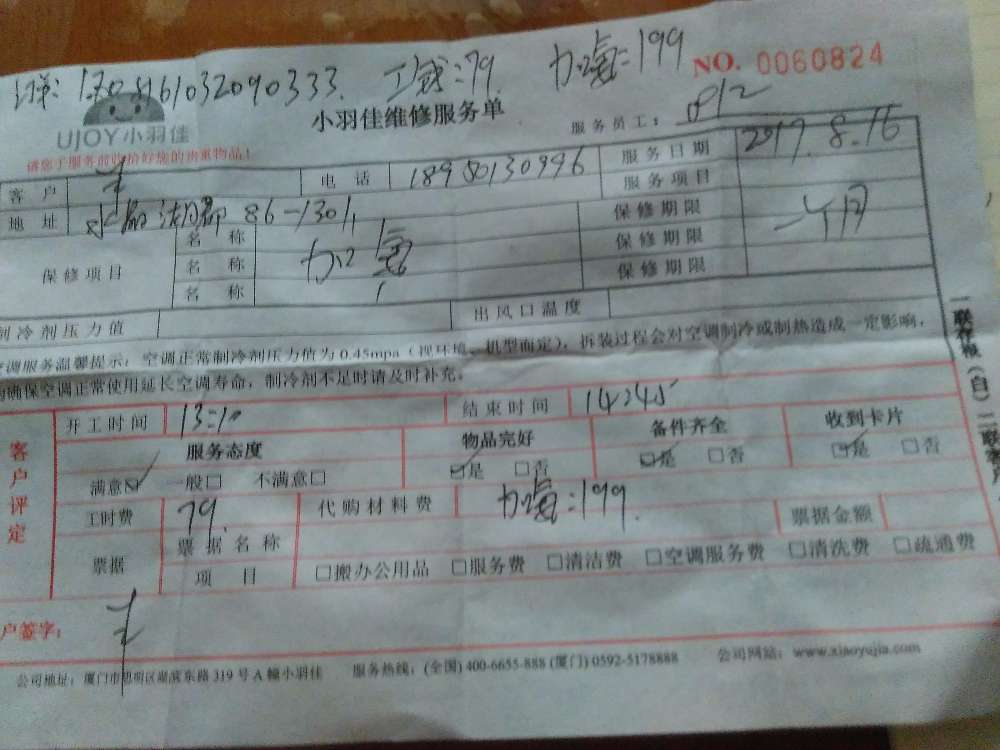 订单: 1708161032090333. 工钱:79. 加氟:199
NO. 0060824
UJOY小羽佳
小羽佳维修服务单
服务员工: 0812
请您于服务前收拾好您的贵重物品!
客户 电话 18950130996 服务日期 2017.8.16
服务项目
地址 86-1301 保修期限 一个月
保修项目 名称 加氟 保修期限
名称 保修期限
名称
制冷剂压力值 出风口温度
空调服务温馨提示: 空调正常制冷剂压力值为0.45mpa(视环境、机型而定), 拆装过程会对空调制冷或制热造成一定影响,
为确保空调正常使用延长空调寿命, 制冷剂不足时请及时补充。
一联存根(白) 二联客户
客户评定
开工时间 13:10 结束时间 14:45
服务态度 物品完好 备件齐全 收到卡片
满意☑ 一般□ 不满意□ ☑是 □否 ☑是 □否 ☑是 □否
工时费 79. 代购材料费 加氟:199. 票据金额
票据 票据名称
项目 □搬办公用品 □服务费 □清洁费 □空调服务费 □清洗费 □疏通费
户签字:
公司地址: 厦门市思明区湖滨东路319号A幢小羽佳 服务热线: (全国) 400-6655-888 (厦门) 0592-5178888 公司网站: www.xiaoyujia.com